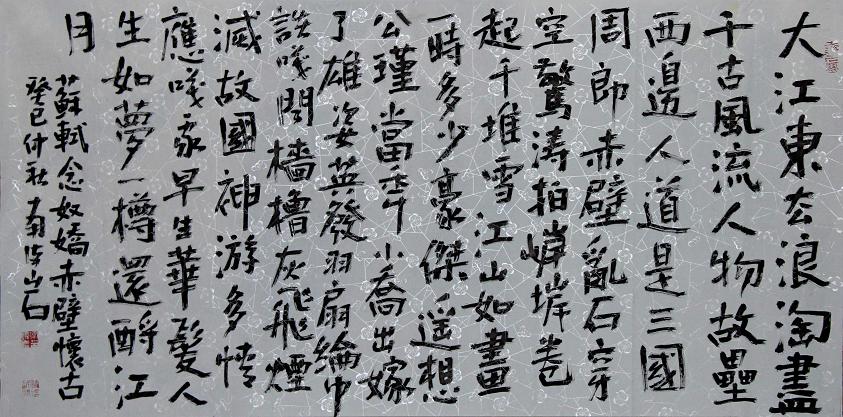 大江東去浪淘盡
千古風流人物故壘
西邊人道是三國
周郎赤壁亂石穿
空驚濤拍崿捲
起千堆雪江山如畫
一時多少豪傑遥想
公瑾當年小喬出嫁
了雄姿英發羽扇綸巾
談咲間檣櫓灰飛煙
滅故國神游多情
應咲我早生華髮人
生如夢一樽還酹江
月
蘇軾念奴嬌赤壁懷古
癸巳仲秋